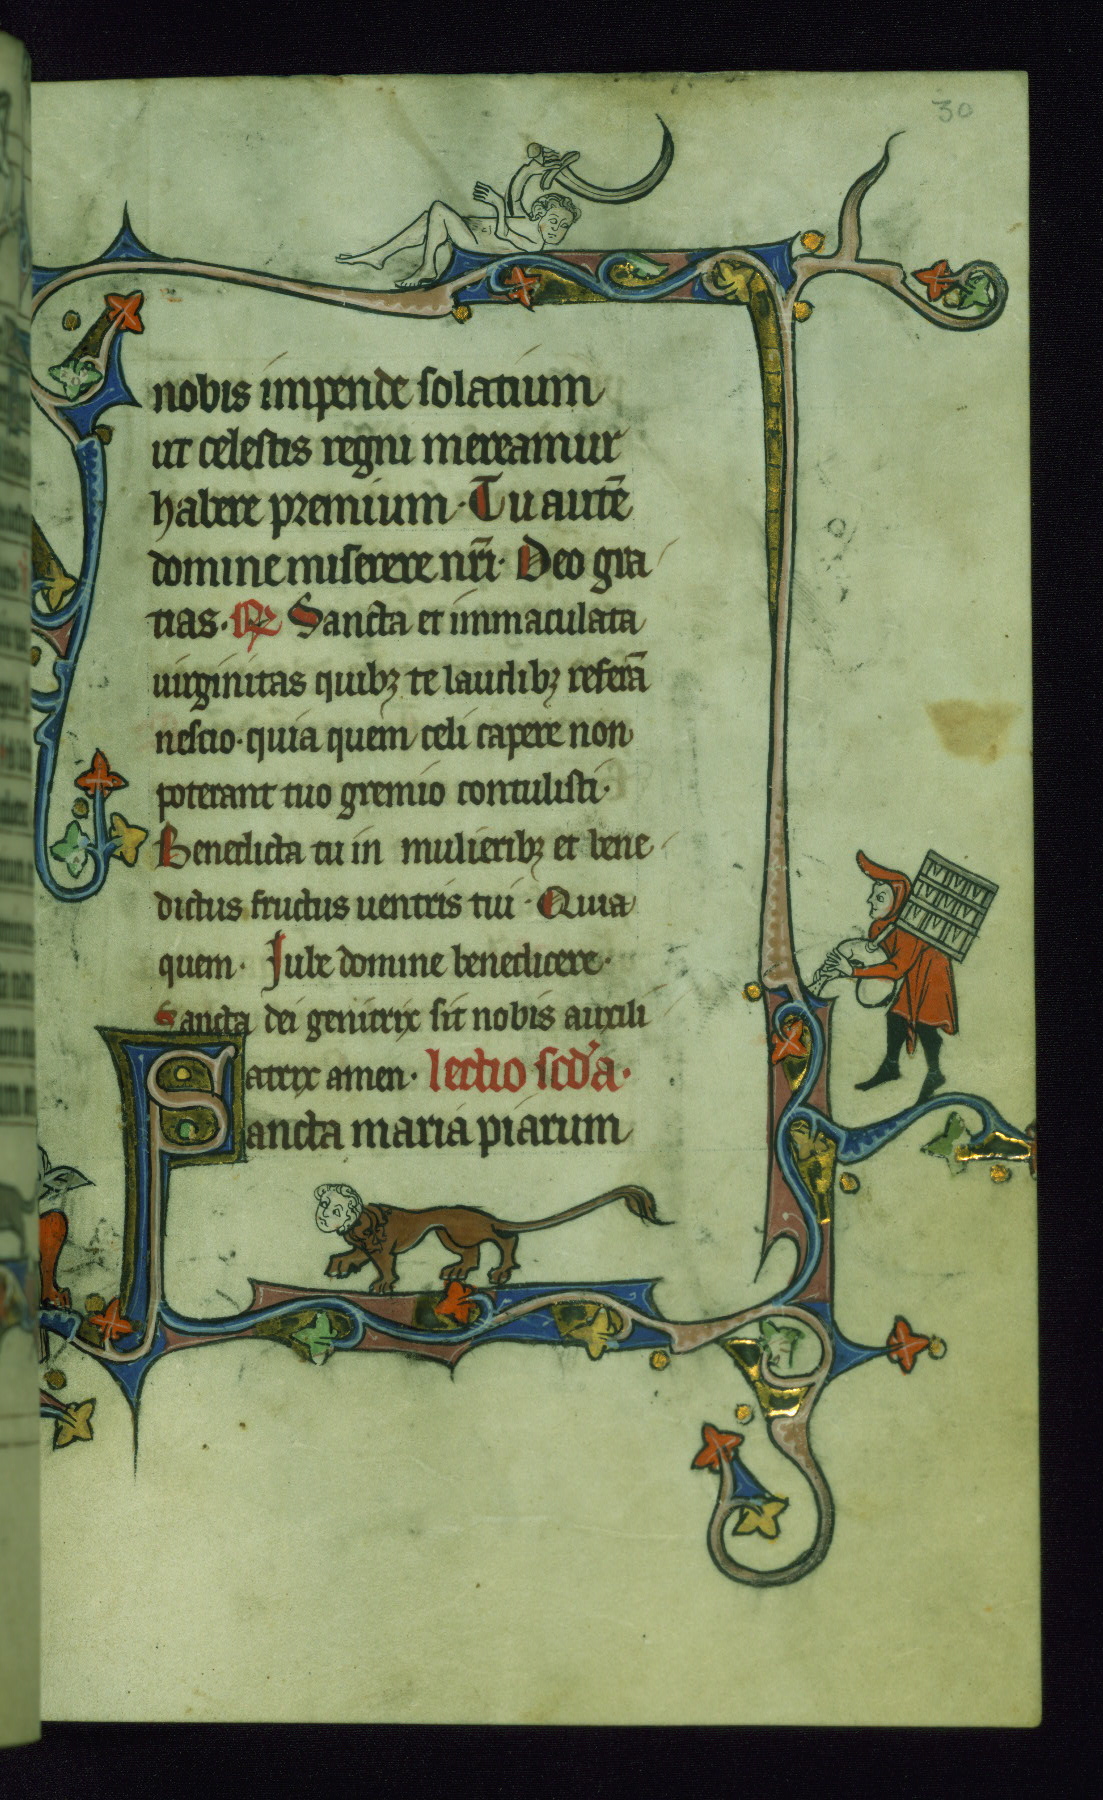 30
nobis impende solatium
ut celestis regni mereamur
habere premium · Tu autē
domine miserere nr̄i · Deo gra
tias · ℞ Sancta et immaculata
uirginitas quibꝫ te laudibꝫ referā
nescio · quia quem celi capere non
poterant tuo gremio contulisti ·
Benedicta tu in mulieribꝫ et bene
dictus fructus uentris tui · Quia
quem · Jube domine benedicere ·
Sancta dei genitrix sit nobis auxili
atrix amen · lectio scd'a ·
Sancta maria piarum